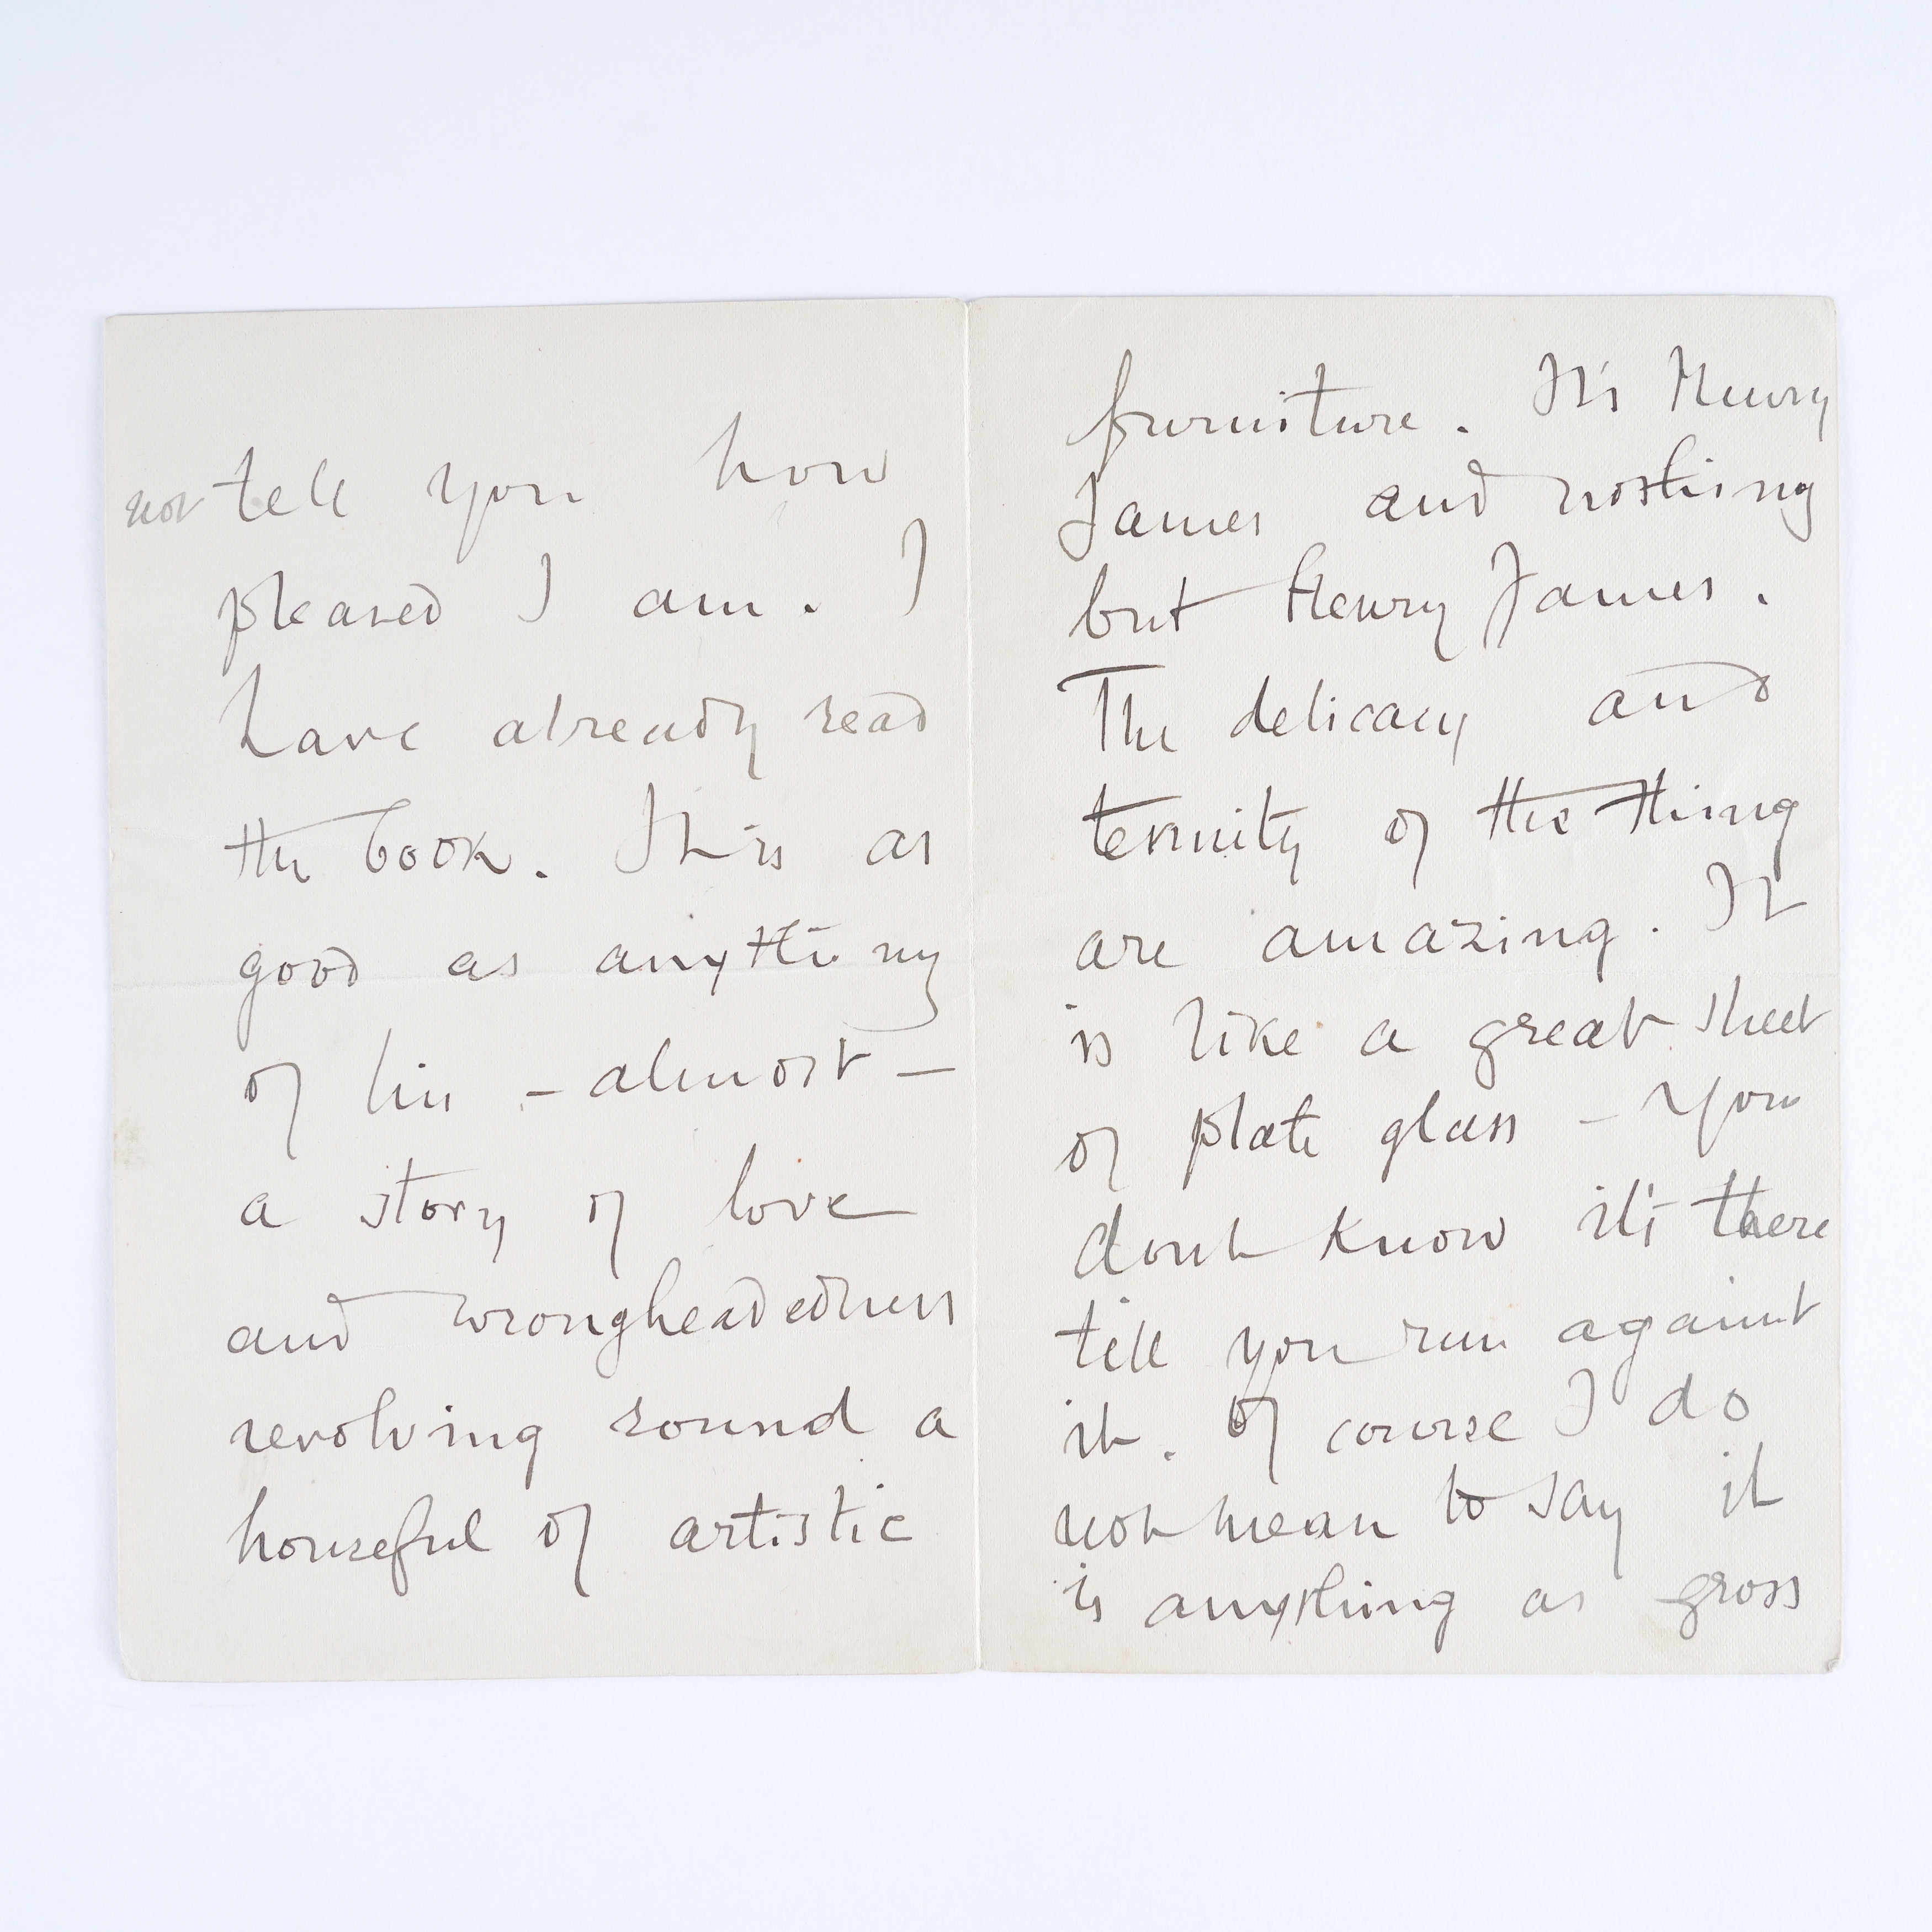 not tell you how
pleased I am. I
have already read
the book. It is as
good as anything
of his – almost –
a story of love
and wrongheadedness
revolving round a
houseful of artistic
furniture. It's Henry
James and nothing
but Henry James.
The delicacy and
tenuity of the thing
are amazing. It
is like a great sheet
of plate glass – you
dont know it's there
till you run against
it. Of course I do
not mean to say it
is anything as gross